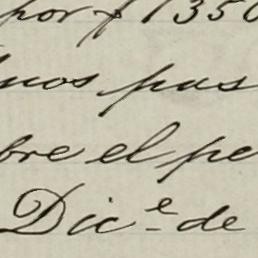 por f 1350
nos pas
bre el pe
Dic.e de